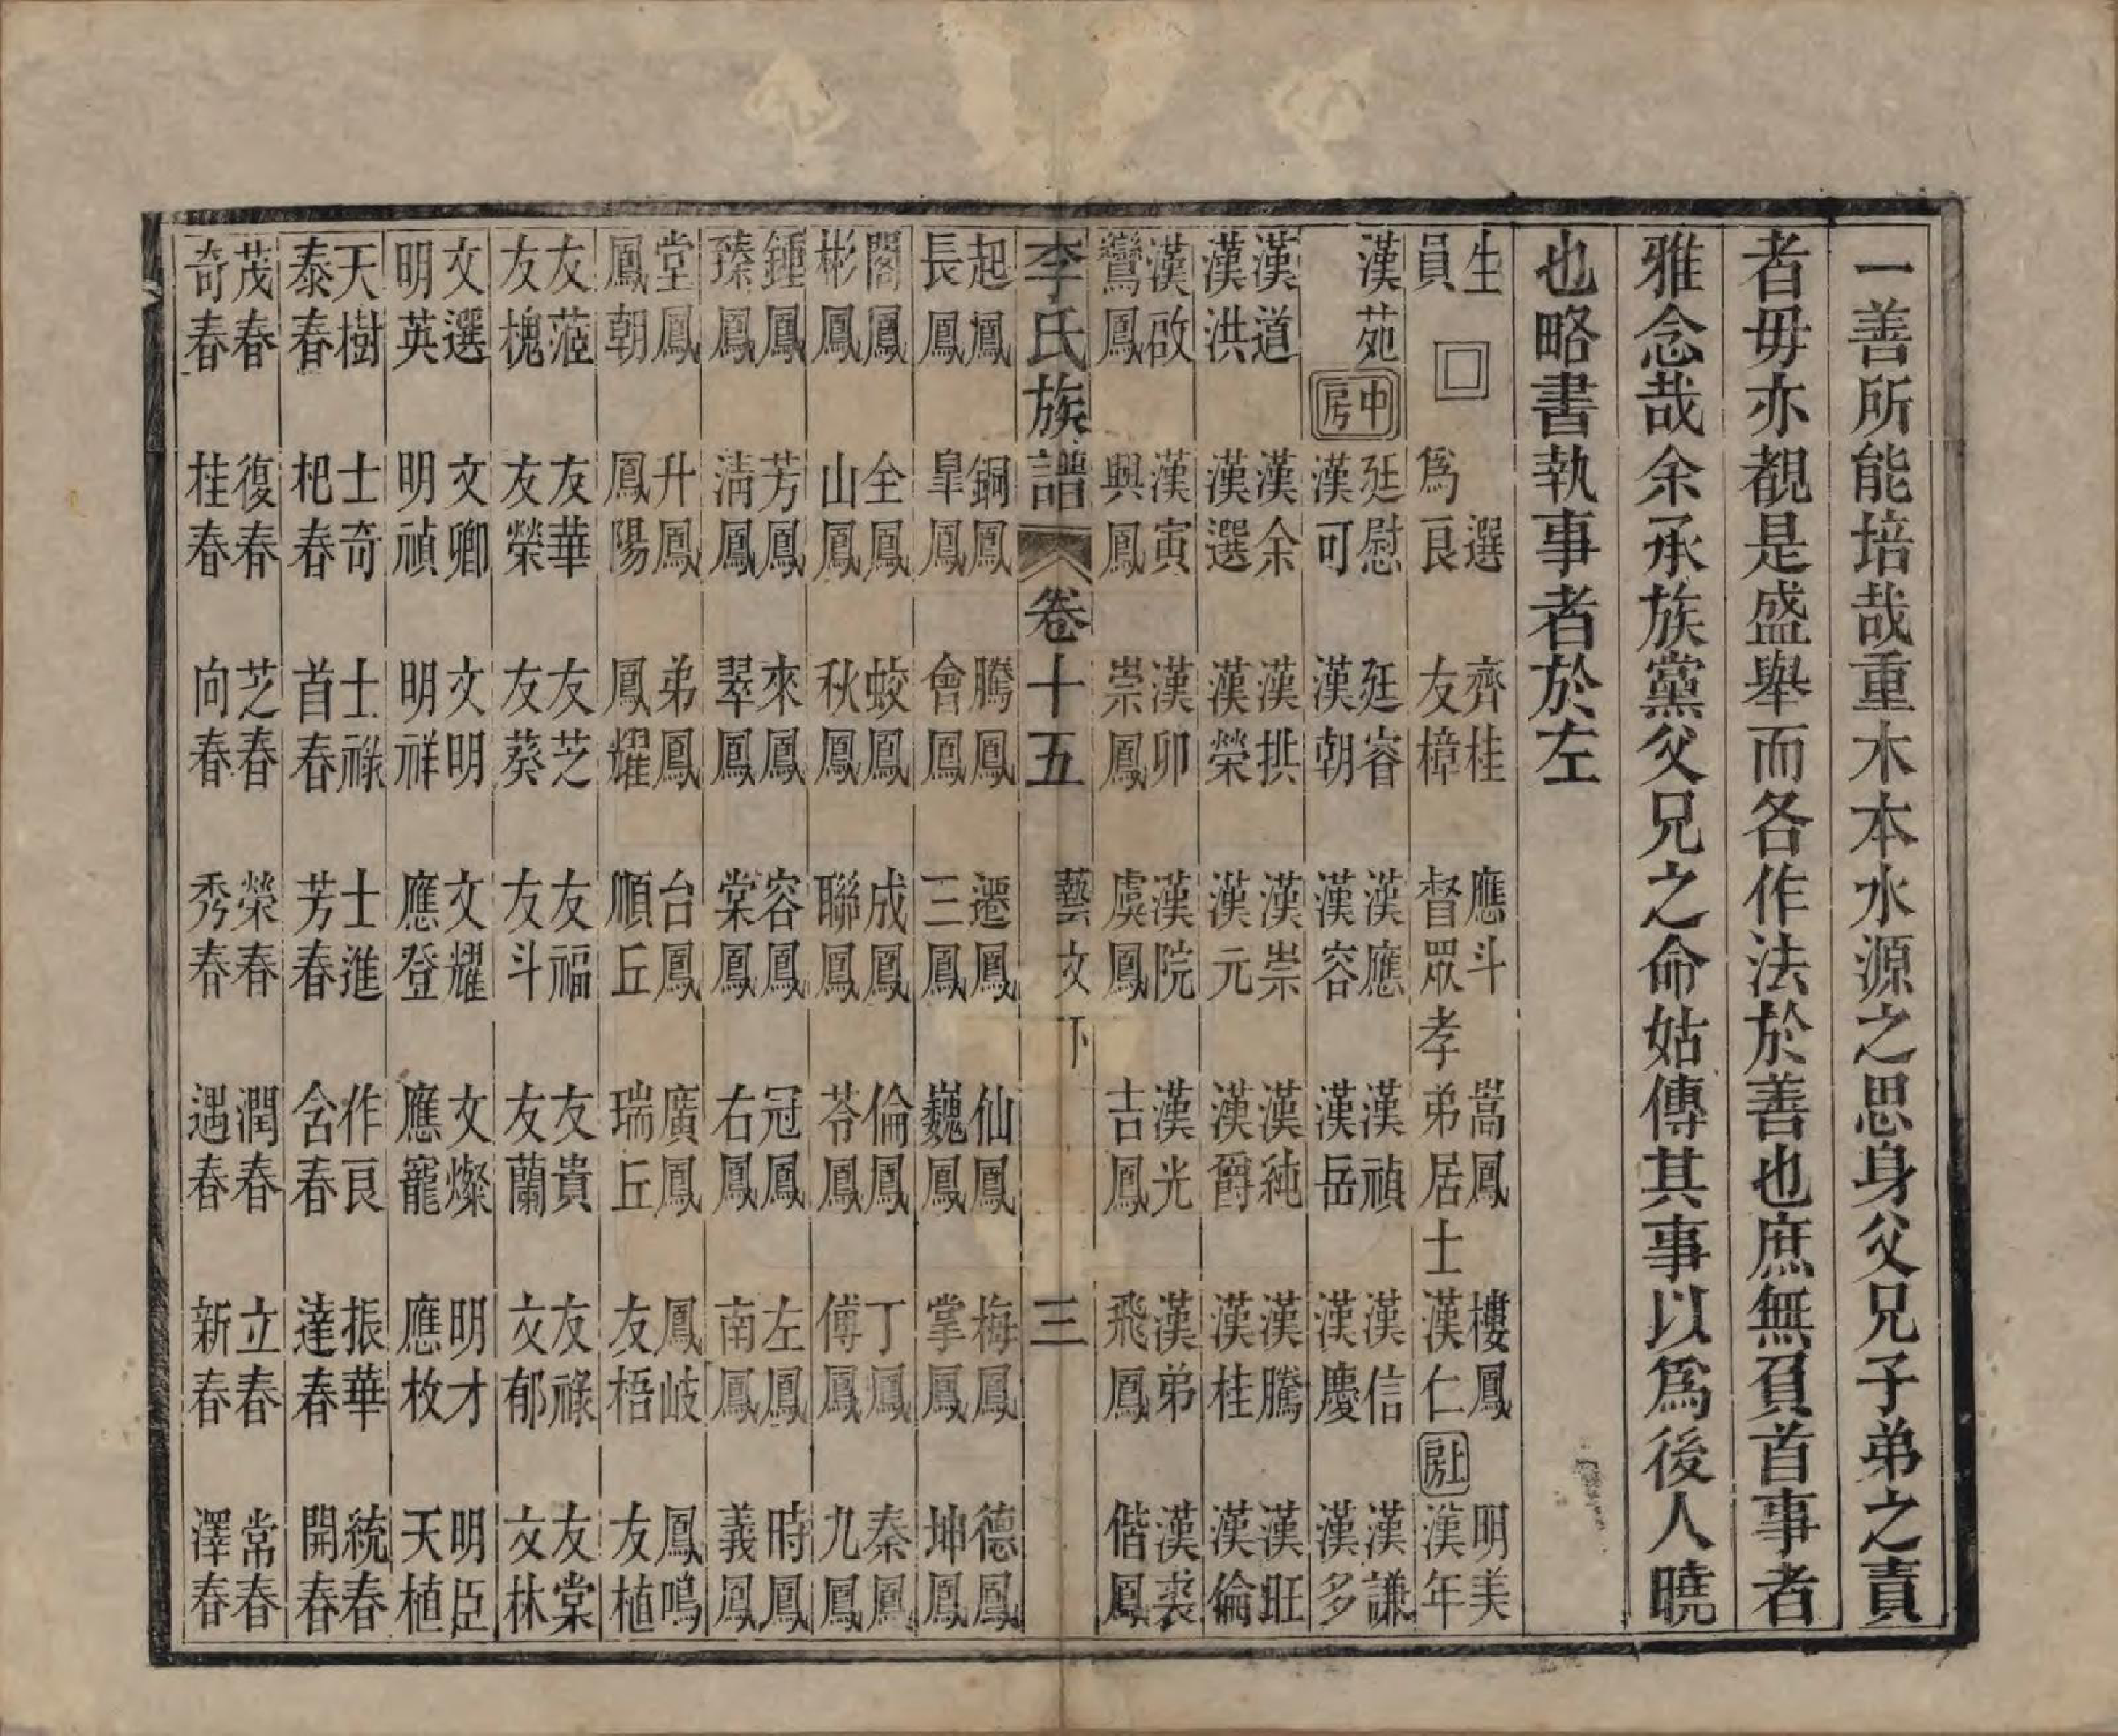 一善所能培哉重木本水源之思身父兄子弟之責
者毋亦覩是盛舉而各作法於善也庶無負首事者
雅念哉余承族黨父兄之命姑傳其事以為後人曉
也略書執事者於左
生 選 齊桂 應斗 嵩鳳 樓鳳 明美
員 為良 友樟 督眾孝弟居士漢仁 上房 漢年
漢苑 中房 廷慰 廷睿 漢應 漢禎 漢信 漢謙
漢可 漢朝 漢容 漢岳 漢慶 漢多
漢道 漢余 漢拱 漢崇 漢純 漢騰 漢旺
漢洪 漢選 漢榮 漢元 漢爵 漢桂 漢倫
漢啟 漢寅 漢卯 漢院 漢光 漢弟 漢裘
鸞鳳 興鳳 崇鳳 虞鳳 吉鳳 飛鳳 偕鳳
李氏族譜 卷十五 藝文下 三
起鳳 銅鳳 騰鳳 遷鳳 仙鳳 梅鳳 德鳳
長鳳 皐鳳 會鳳 三鳳 巍鳳 掌鳳 坤鳳
閣鳳 全鳳 蛟鳳 成鳳 倫鳳 丁鳳 秦鳳
彬鳳 山鳳 秋鳳 聯鳳 苓鳳 傅鳳 九鳳
鍾鳳 芳鳳 來鳳 容鳳 冠鳳 左鳳 時鳳
臻鳳 清鳳 翠鳳 棠鳳 右鳳 南鳳 義鳳
堂鳳 升鳳 弟鳳 台鳳 廣鳳 鳳岐 鳳鳴
鳳朝 鳳陽 鳳耀 順丘 瑞丘 友梧 友植
友蒞 友華 友芝 友福 友貴 友祿 友棠
友槐 友榮 友葵 友斗 友蘭 文郁 文林
文選 文卿 文明 文耀 文燦 明才 明臣
明英 明禎 明祥 應登 應寵 應枚 天植
天樹 士奇 士祿 士進 作良 振華 統春
泰春 杷春 首春 芳春 含春 達春 開春
茂春 復春 芝春 榮春 潤春 立春 常春
奇春 桂春 向春 秀春 遇春 新春 澤春